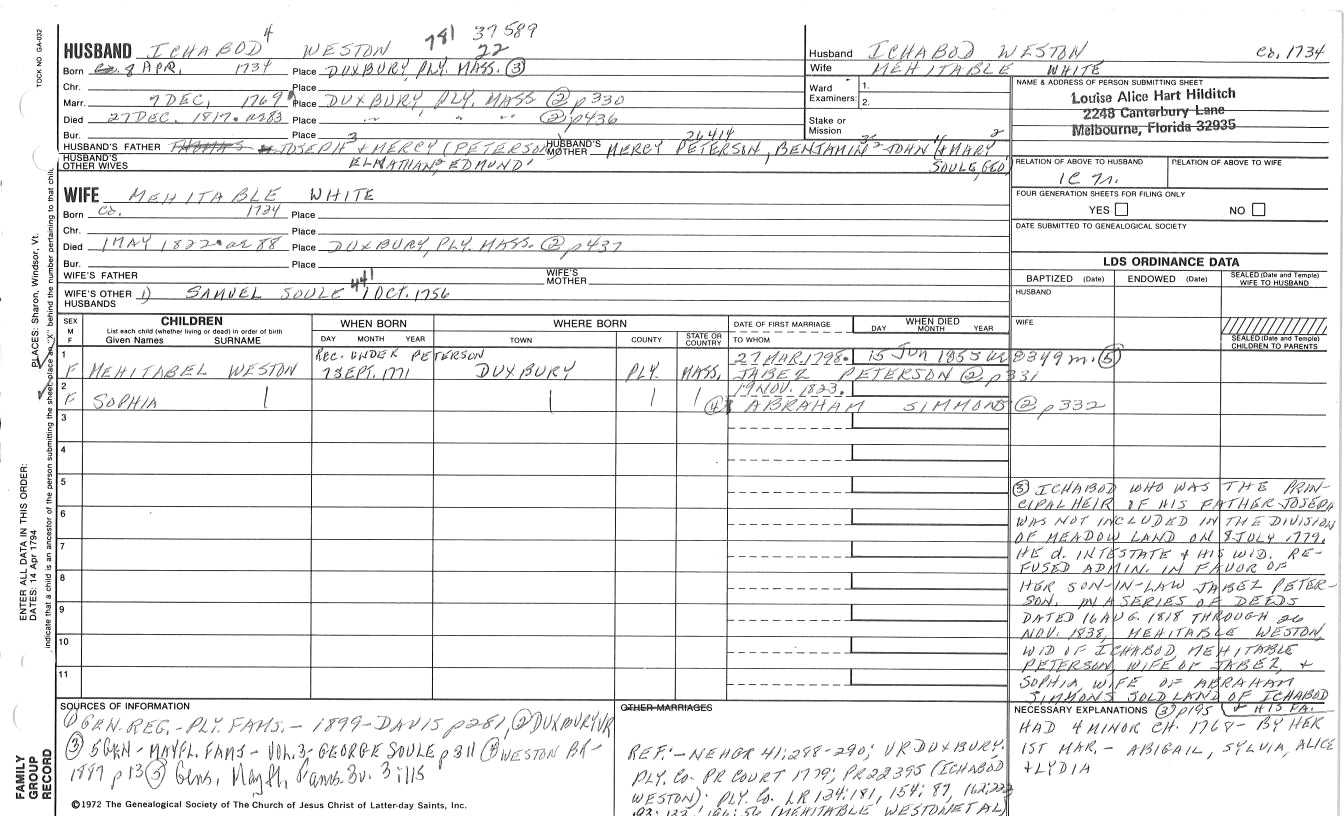 TOCK NO. GA-032
HUSBAND ICHABOD 4 WESTON 781 37589
22
Born 8 APR. 1734 Place DUXBURY, PLY. MASS. ③
Chr. Place
Marr. 7 DEC, 1769 Place DUXBURY, PLY. MASS ② p330
Died 27 DEC. 1817. ae 83 Place " " " ② p436
Bur. Place
HUSBAND'S FATHER THOMAS JOSEPH 3 + MERCY (PETERSON) HUSBAND'S MOTHER MERCY PETERSON, 26414 BENJAMIN JOHN + MARY
HUSBAND'S OTHER WIVES ELNATHAN, EDMOND SOULE, GEO
Husband ICHABOD WESTON Co. 1734
Wife MEHITABLE WHITE
Ward Examiners: 1.
2.
Stake or Mission
NAME & ADDRESS OF PERSON SUBMITTING SHEET
Louise Alice Hart Hilditch
2248 Canterbury Lane
Melbourne, Florida 32935
RELATION OF ABOVE TO HUSBAND RELATION OF ABOVE TO WIFE
FOUR GENERATION SHEETS FOR FILING ONLY
YES NO
DATE SUBMITTED TO GENEALOGICAL SOCIETY
WIFE MEHITABLE WHITE
Born ca. 1734 Place
Chr. Place
Died 1 MAY 1822. ae 88 Place DUXBURY, PLY. MASS. ② p437
Bur. Place
WIFE'S FATHER WIFE'S MOTHER
WIFE'S OTHER HUSBANDS 1) SAMUEL SOULE 1 OCT. 1756
LDS ORDINANCE DATA
BAPTIZED (Date) ENDOWED (Date) SEALED (Date and Temple) WIFE TO HUSBAND
HUSBAND
WIFE
SEALED (Date and Temple) CHILDREN TO PARENTS
SEX M F CHILDREN List each child (whether living or dead) in order of birth Given Names SURNAME WHEN BORN DAY MONTH YEAR WHERE BORN TOWN COUNTY STATE OR COUNTRY DATE OF FIRST MARRIAGE TO WHOM WHEN DIED DAY MONTH YEAR
REC. UNDER PETERSON 27 MAR. 1798. 15 JUN 1855 ae 83 9 m. ⑤
1 F MEHITABEL WESTON 7 SEPT. 1771 DUXBURY PLY. MASS. JABEZ PETERSON ② p331
19 NOV. 1823.
2 F SOPHIA ④ ABRAHAM SIMMONS ② p332
3
4
5
6
7
8
9
10
11
③ ICHABOD WHO WAS THE PRIN-
CIPAL HEIR OF HIS FATHER JOSEPH
WAS NOT INCLUDED IN THE DIVISION
OF MEADOW LAND ON 8 JULY 1779.
HE d. INTESTATE + HIS WID. RE-
FUSED ADMIN. IN FAVOR OF
HER SON-IN-LAW JABEZ PETER-
SON. IN A SERIES OF DEEDS
DATED 16 AUG. 1818 THROUGH 26
NOV. 1838, MEHITABLE WESTON,
WID OF ICHABOD, MEHITABLE
PETERSON WIFE OF JABEZ, +
SOPHIA WIFE OF ABRAHAM
SIMMONS SOLD LAND OF ICHABOD
+ HIS FA.
NECESSARY EXPLANATIONS ③ p195
HAD 4 MINOR CH. 1768 - BY HER
1ST MAR. - ABIGAIL, SYLVIA, ALICE
+ LYDIA
SOURCES OF INFORMATION
① GEN. REG. - PLY. FAMS. - 1899 - DAVIS p281, ② DUXBURY VR
③ 5 GEN - MAYFL. FAMS - VOL. 3; GEORGE SOULE p311 ④ WESTON BR-
1887 p13 ⑤ Gens. Mayfl. Fams. 3v. 3
OTHER MARRIAGES
REF:- NEHGR 41:288-290; VR DUXBURY.
PLY. Co. PR COURT 1779; PR 22395 (ICHABOD
WESTON); PLY. Co. LR 134:181, 154:87, 162:222
(MEHITABLE WESTON ET AL)
©1972 The Genealogical Society of The Church of Jesus Christ of Latter-day Saints, Inc.
FAMILY GROUP RECORD
ENTER ALL DATA IN THIS ORDER:
DATES: 14 Apr 1794
PLACES: Sharon, Windsor, Vt.
indicate that a child is an ancestor of the person submitting the sheet, place an "X" behind the number pertaining to that child.